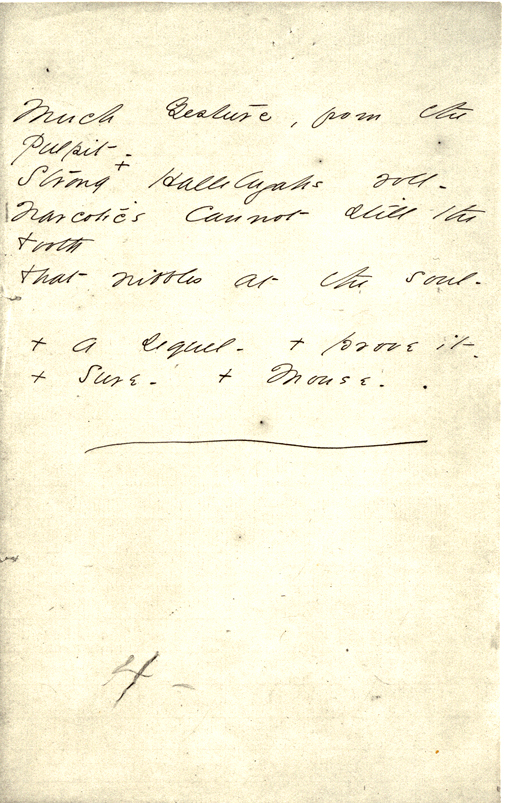 Much Gesture, from the
Pulpit -
+
Strong Hallelujahs roll -
Narcotics Cannot still the
tooth
that nibbles at the soul -
+ a sequel - + prove it -
+ Sure - + Mouse -.
4 -